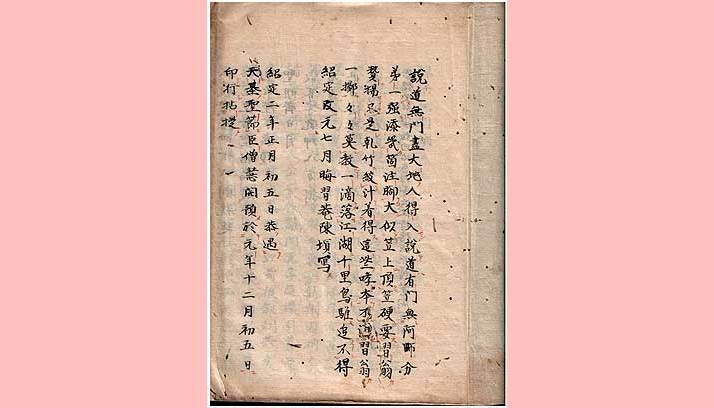 說道無門盡大地人得入說道有门無阿師分
弟一强添幾箇注脚大似笠上頂笠硬要習翁
贊揚又是乾竹絞汁着得這些哮本不消習翁
一擲々々莫教一滴落江湖千里烏騅追不得
紹定改元七月晦習菴陳塤寫
紹定二年正月初五日恭遇
天基聖節臣僧慧開預於元年十二月初五日
印行拈提